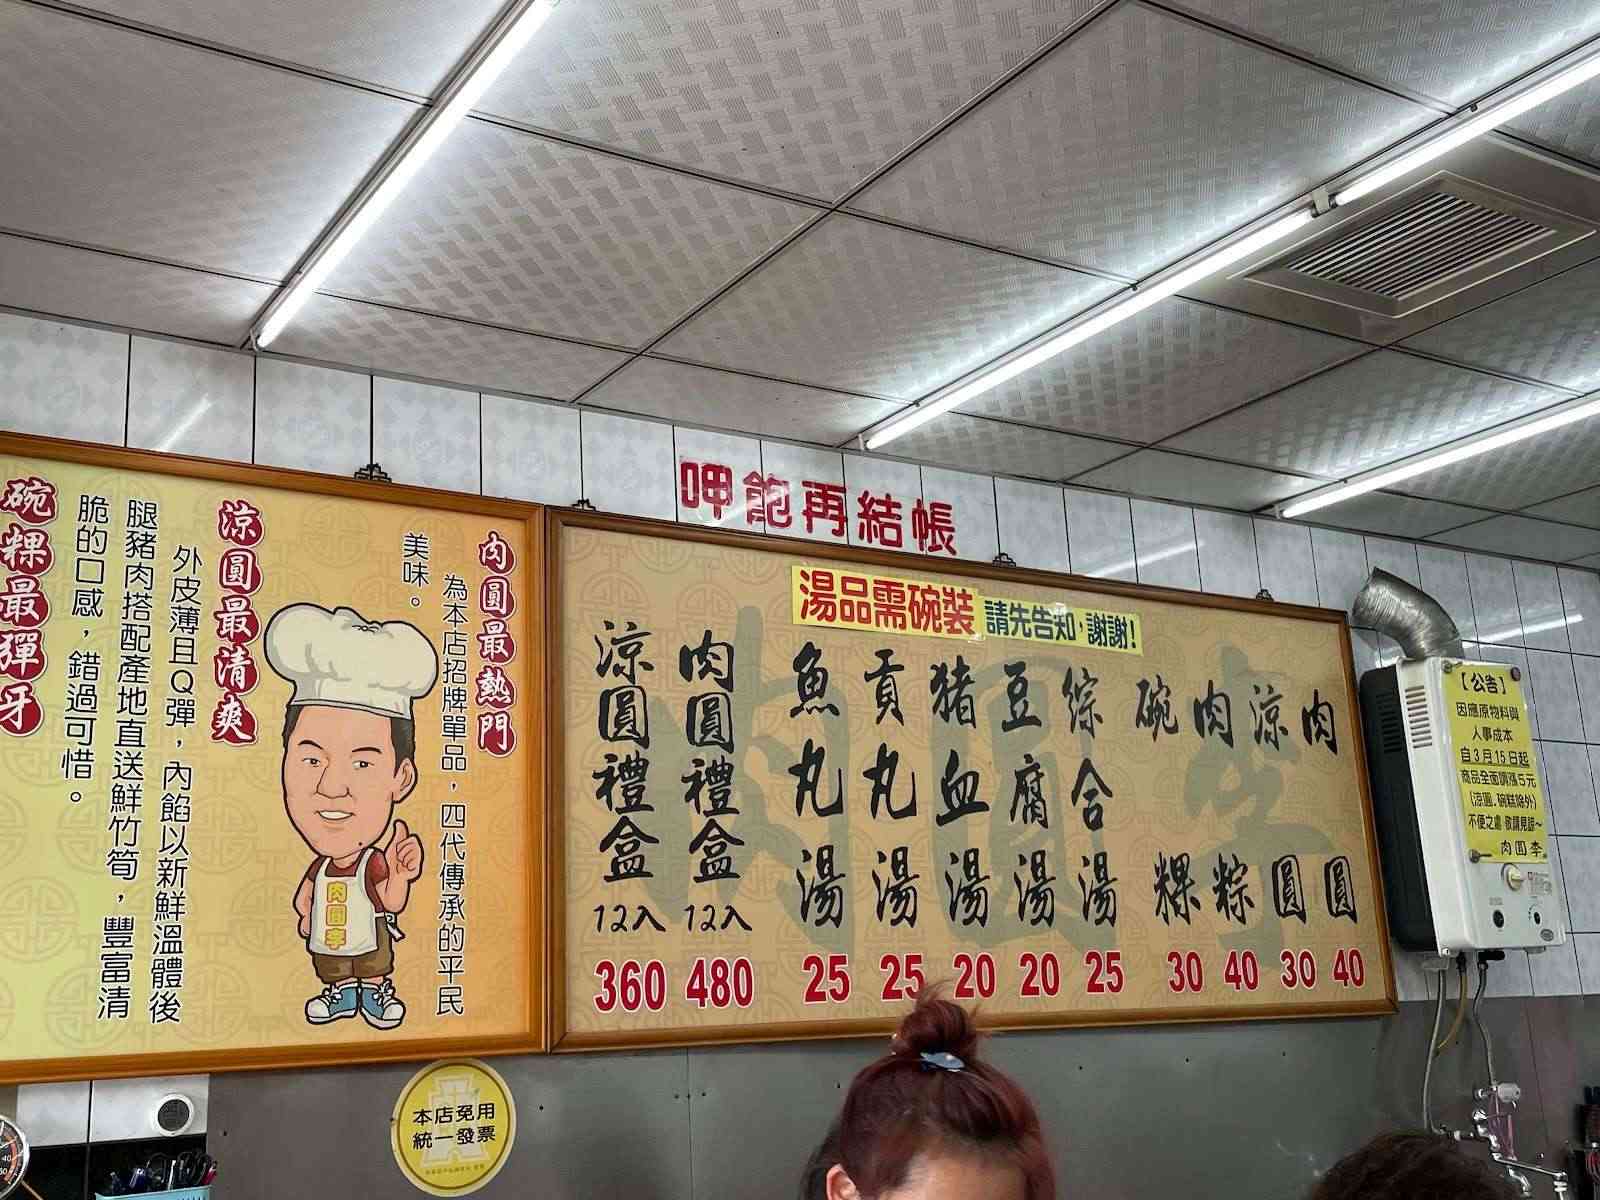 呷飽再結帳
湯品需碗裝
請先告知，謝謝！
肉圓 40
涼圓 30
肉粽 40
碗粿 30
綜合湯 25
豆腐湯 20
豬血湯 20
貢丸湯 25
魚丸湯 25
肉圓禮盒 12入 480
涼圓禮盒 12入 360
肉圓李
肉圓最熱門
為本店招牌單品，四代傳承的平民
美味。
涼圓最清爽
外皮薄且Q彈，內餡以新鮮溫體後
腿豬肉搭配產地直送鮮竹筍，豐富清
脆的口感，錯過可惜。
碗粿最彈牙
肉圓李
本店免用
統一發票
【公告】
因應原物料與
人事成本
自3月15日起
商品全面調漲5元
(涼圓.碗糕除外)
不便之處 敬請見諒~
肉圓李